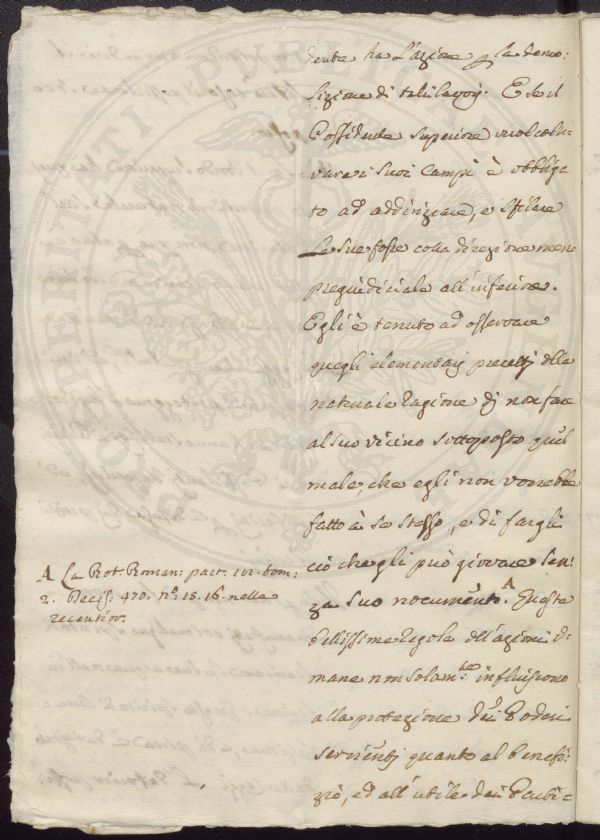 dente ha l'azione p la demo:
lizione di tali lavorj. E se il
Possidente superiore vuol colti-
vare i suoi campi è obbliga
to ad addirizzare, e sfilare
le sue fosse colla direzione meno
pregiudiciale all'inferiore.
Egli è tenuto ad osservare
quegli elementarj precetti della
naturale ragione di non fare
al suo vicino sottoposto quel
male, che egli non vorrebbe
fatto à se stesso, e di fargli
ciò che gli può giovare sen:
za suo nocumento. A Queste
bellissime regole dell'azioni u-
mane non solam:te influiscono
alla protezione dei Poderi
servienti quanto al benefi:
zio, ed all'utile dei Pubi=
A La Rot: Roman: part: IV. tom:
2. Decis: 470. no. 15. 16. nelle
recentior.